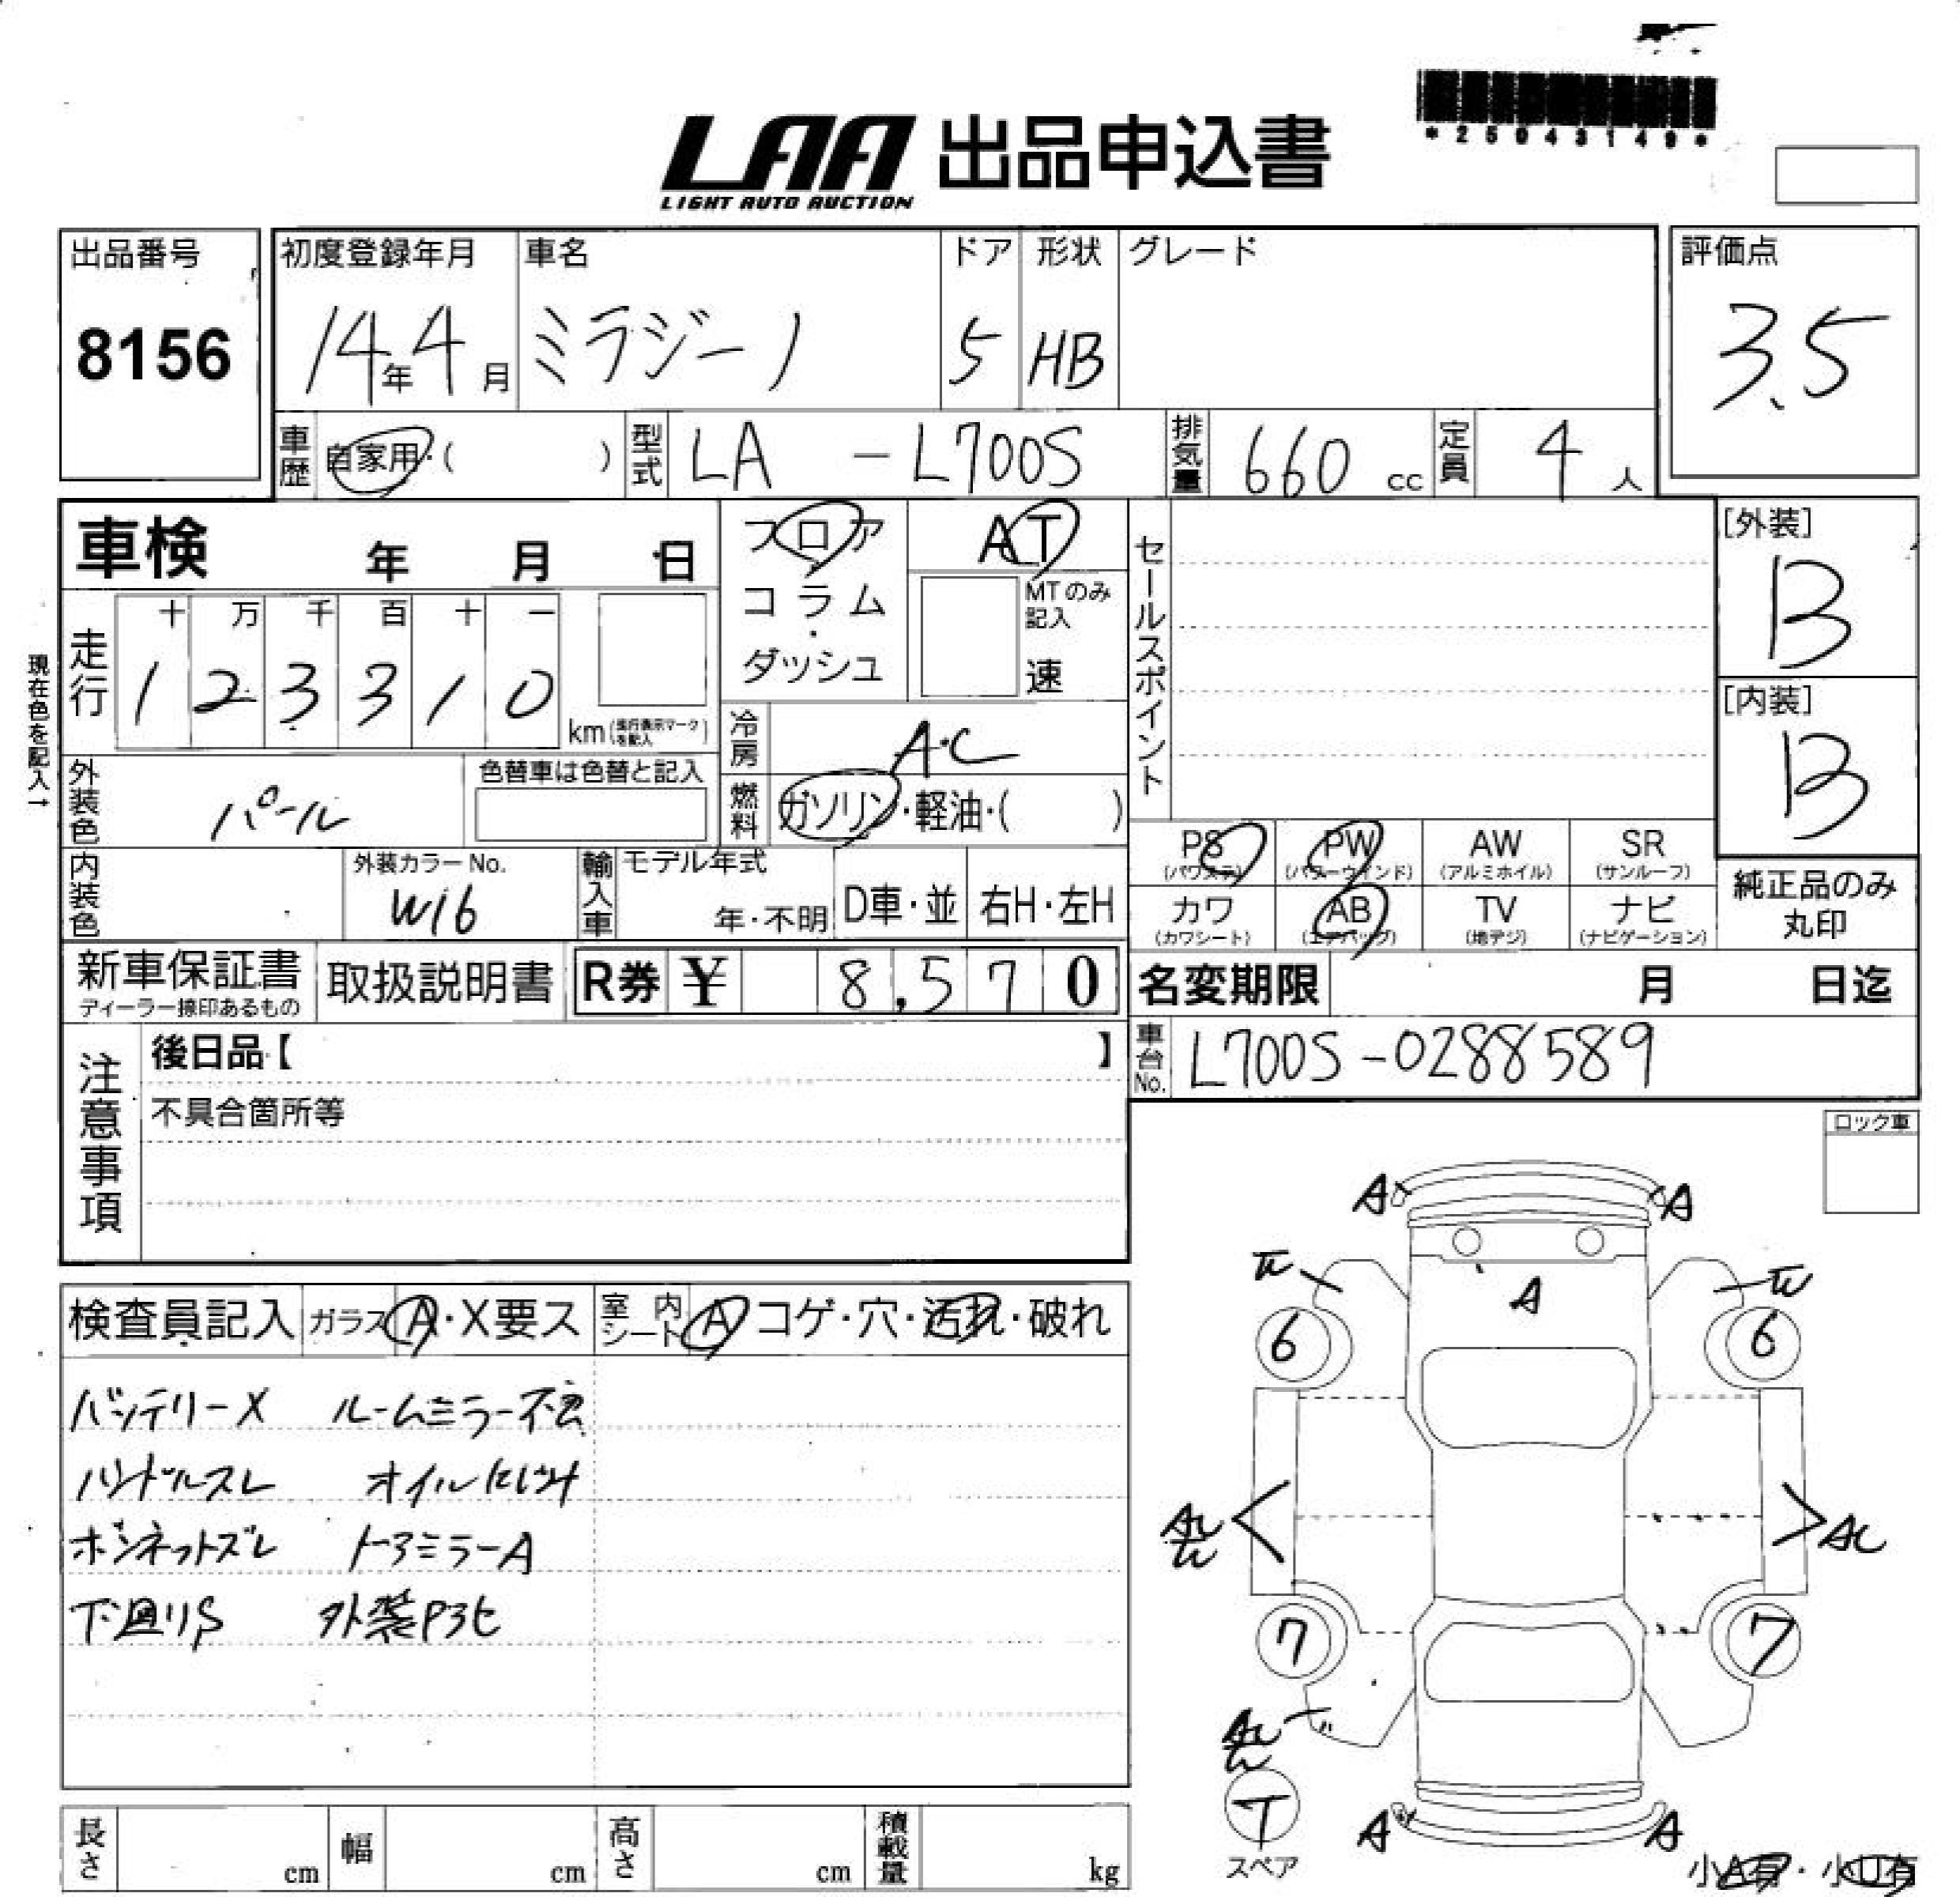 *25043149*
LAA 出品申込書
LIGHT AUTO AUCTION
出品番号
8156
初度登録年月
14年4月
車名
ミラジーノ
ドア
5
形状
HB
グレード
評価点
3.5
車歴 自家用・( )
型式 LA - L700S
排気量 660 cc
定員 4 人
車検 年 月 日
フロア
コラム
・
ダッシュ
AT
MTのみ
記入
速
セールスポイント
[外装]
B
[内装]
B
現在色を記入→
走行
十 万 千 百 十 一
1 2 3 3 1 0
km(走行表示マークを記入)
冷房 A・C
燃料 ガソリン・軽油・( )
外装色 パール
色替車は色替と記入
PS (パワステ)
PW (パワーウインド)
AW (アルミホイル)
SR (サンルーフ)
カワ (カワシート)
AB (エアバッグ)
TV (地デジ)
ナビ (ナビゲーション)
純正品のみ
丸印
内装色
外装カラーNo.
W16
輸入車
モデル年式
年・不明
D車・並
右H・左H
新車保証書
ディーラー捺印あるもの
取扱説明書
R券 ¥ 8,570
名変期限 月 日迄
車台No. L700S-0288589
注意事項
後日品【 】
不具合箇所等
ロック車
検査員記入 ガラス A・X要ス 室内シート A コゲ・穴・汚れ・破れ
バッテリーX ルームミラー不良
ハンドルスレ オイルにじみ
ボンネットズレ ドアミラーA
下廻りS 外装Pヨセ
A A
A
6 6
AU
7 7
T
スペア
A A
小A有・小U有
長さ cm
幅 cm
高さ cm
積載量 kg